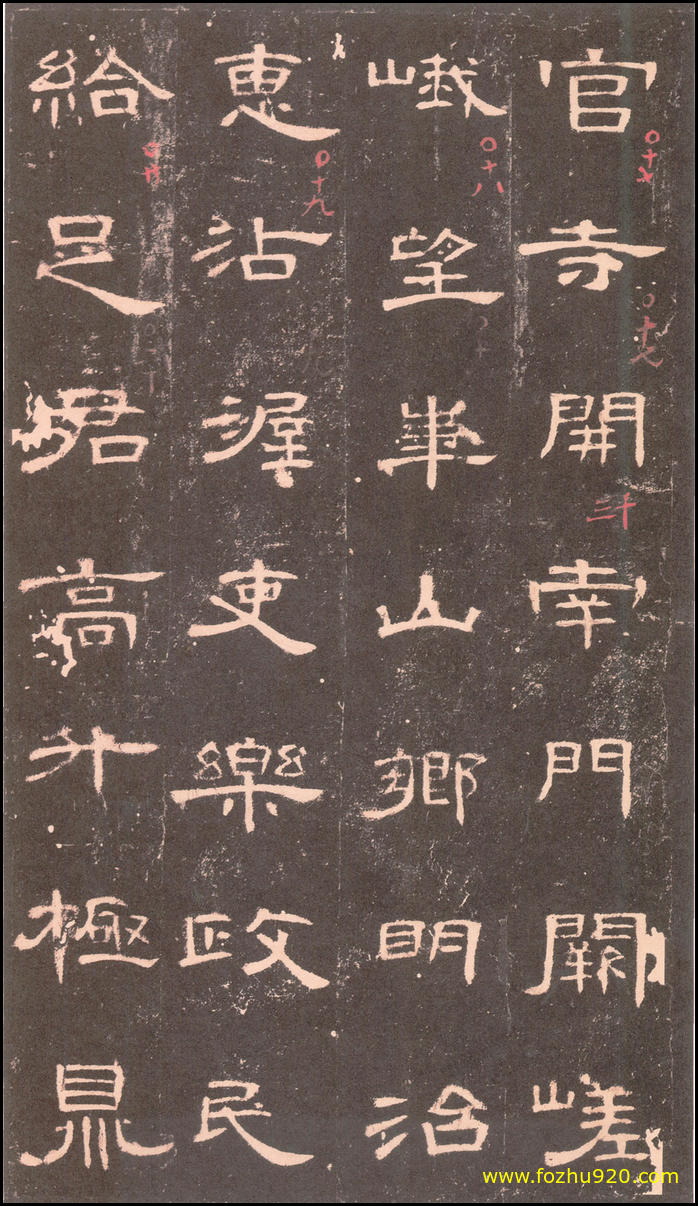 官寺開南門闕嵯
峨望華山鄉明治
惠沾渥吏樂政民
給足君高升極鼎
○十七
○十七
○十八
○十九
www.fozhu920.com